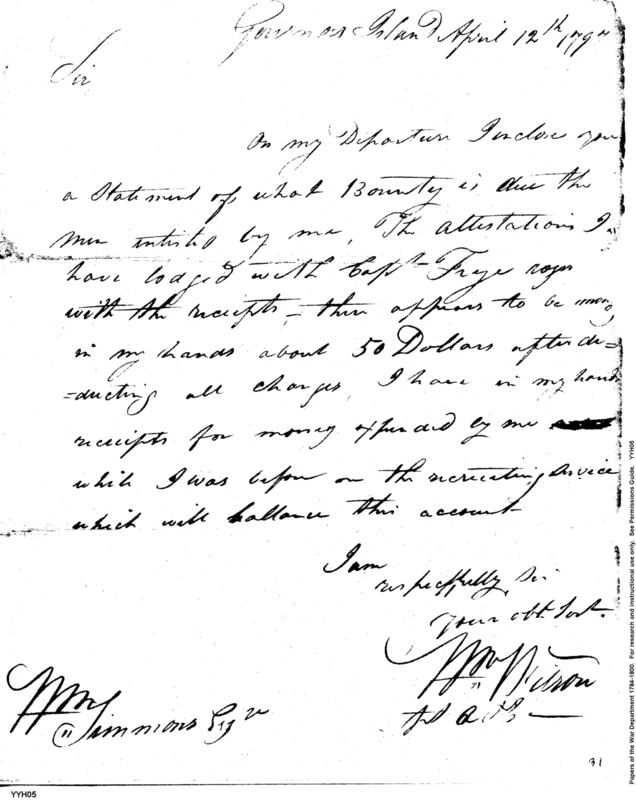 Governors Island April 12th 179
Sir
On my Departure I inclose you
a Statement of what Bounty is due the
Men intisted by me, The attestations I
have lodged with Capt Frye
with the receipts – there appears to be mony
in my hands about 50 Dollars after de=
=ducting all charges, I have in my hands
receipts for money expended by me
while I was before on the recruiting Service
which will ballance this account
I am
respectfully, Sir
your obt. Sert.
Wm Wilson
Wm Simmons Esqr
31
YYH05
Papers of the War Department 1784-1800. For research and instructional use only. See Permissions Guide. YYH05